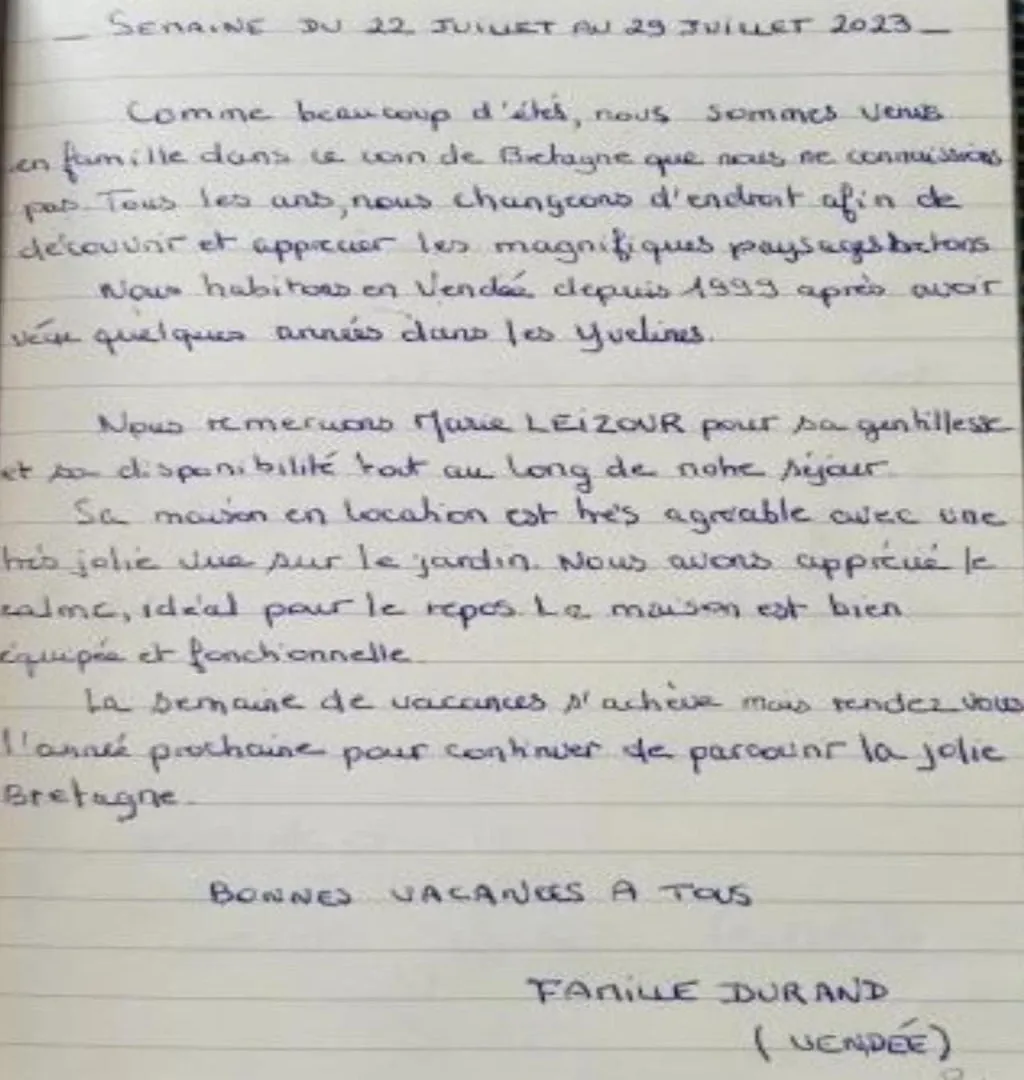 _ SEMAINE DU 22 JUILLET AU 29 JUILLET 2023 _
Comme beaucoup d'étés, nous sommes venus
en famille dans ce coin de Bretagne que nous ne connaissions
pas. Tous les ans, nous changeons d'endroit afin de
découvrir et apprécier les magnifiques paysages bretons
Nous habitons en Vendée depuis 1999 après avoir
vécu quelques années dans les Yvelines.
Nous remercions Marie LEIZOUR pour sa gentillesse
et sa disponibilité tout au long de notre séjour.
Sa maison en location est très agréable avec une
très jolie vue sur le jardin. Nous avons apprécié le
calme, idéal pour le repos. La maison est bien
équipée et fonctionnelle.
La semaine de vacances s'achève mais rendez vous
l'année prochaine pour continuer de parcourir la jolie
Bretagne.
BONNES VACANCES A TOUS
FAMILLE DURAND
(VENDÉE)